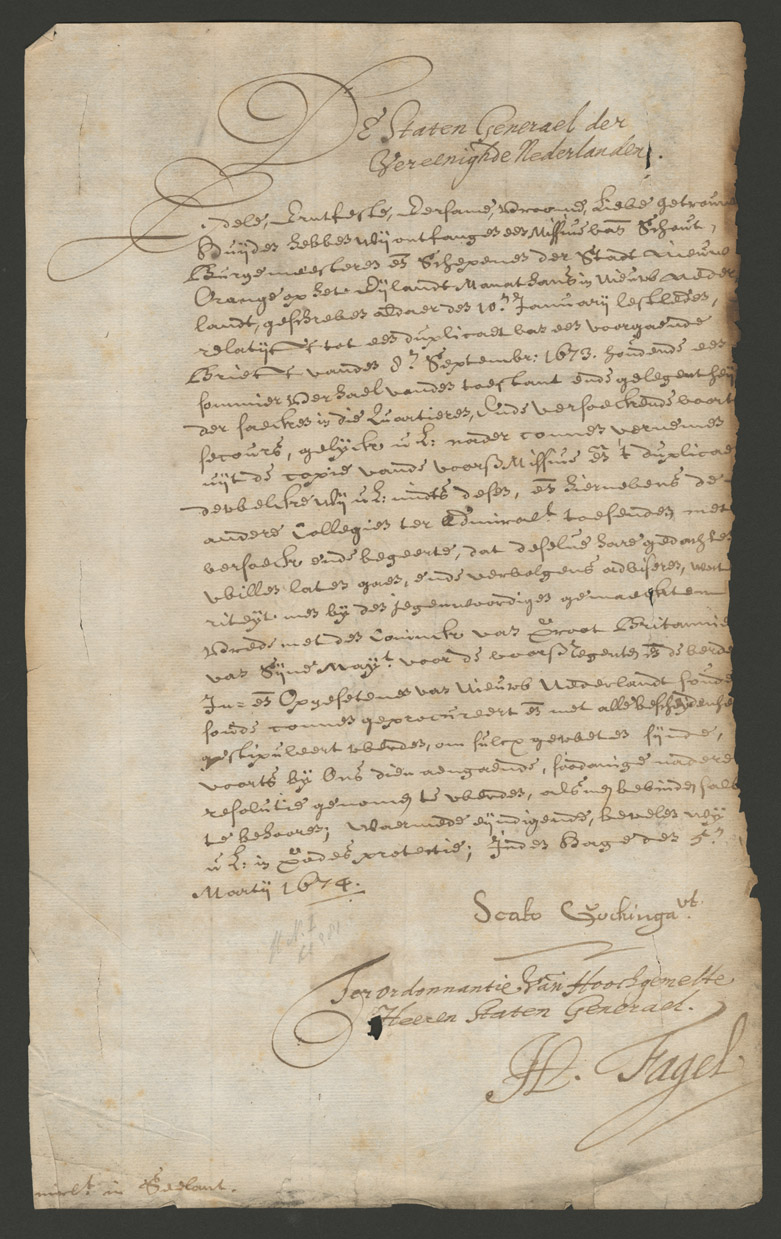 De Staten Generael der
Vereenighde Nederlanden.
Edele, Erntfeste, Eersame, Vroome, Lieve getrouwe
Huijden hebben wij ontfangen een Missive van Schout,
Burgemeesteren en Schepenen der Stadt Nieuw
Orange op het Eijlandt Manathans in Nieuw Neder
landt, geschreven aldaer den 10.n Januarij lestleden,
relatijf tot een duplicaet van een voorgaende
Brief vanden 8.n Septembr: 1673. houdende een
sommier verhael vanden toestant ende gelegentheijt
der saecken in die Quartieren, Ende versoeckende voorts
secours, gelijck u E: nader connen vernemen
uijt de copie vande voorsz Missive en 't duplicaet
dewelcke wij u E: mits desen, en hiernevens de
andere Collegien ter Admiralt. toesenden met
versoeck ende begeerte, dat deselve hare gedachten
willen laten gaen, ende vervolgens adviseren, wat
men by den jegenwoordigen gemaeckten
Vrede met den Coninck van Groot Britannie
van Sijne Mayt. voor de voorsz Regenten en verdere
In= en Opgesetenen van Nieuw Nederlandt soude
connen geprocureert en met alle bescheijdenheijt
gestipuleert werden, om sulcx geweten sijnde,
voorts by Ons dien aengaende, soodanige nadere
resolutie genomen te werden, als men bevinden sal
te behooren; Waermede eijndigende, bevelen wij
u E: in Godes protectie; In den Hage den 5.n
Martij 1674.
Scato Gockinga vt.
Ter ordonnantie van Hoochgemelte
Heeren Staten Generael.
H. Fagel.
in Seelant.